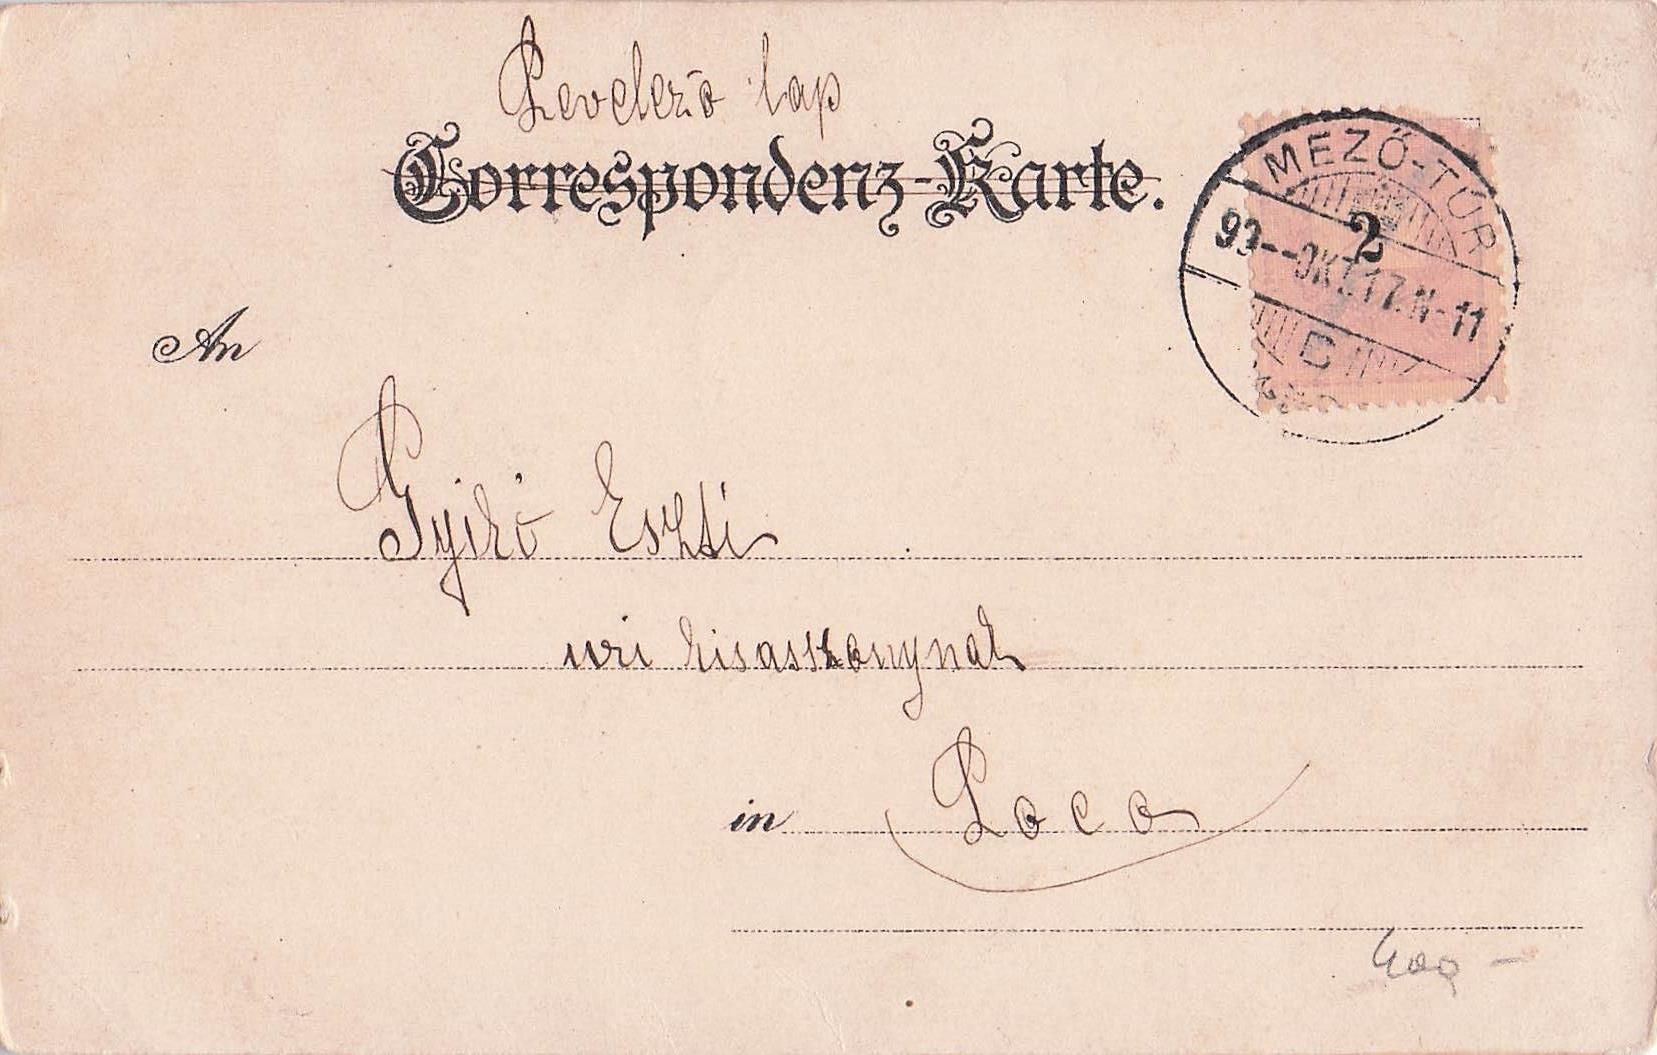 Levelező lap
Correspondenz-Karte.
MEZŐ-TÚR
2
99--OKT.17.N-11
C
An
Gyikó Eszti
uri kisasszonynak
in Loco